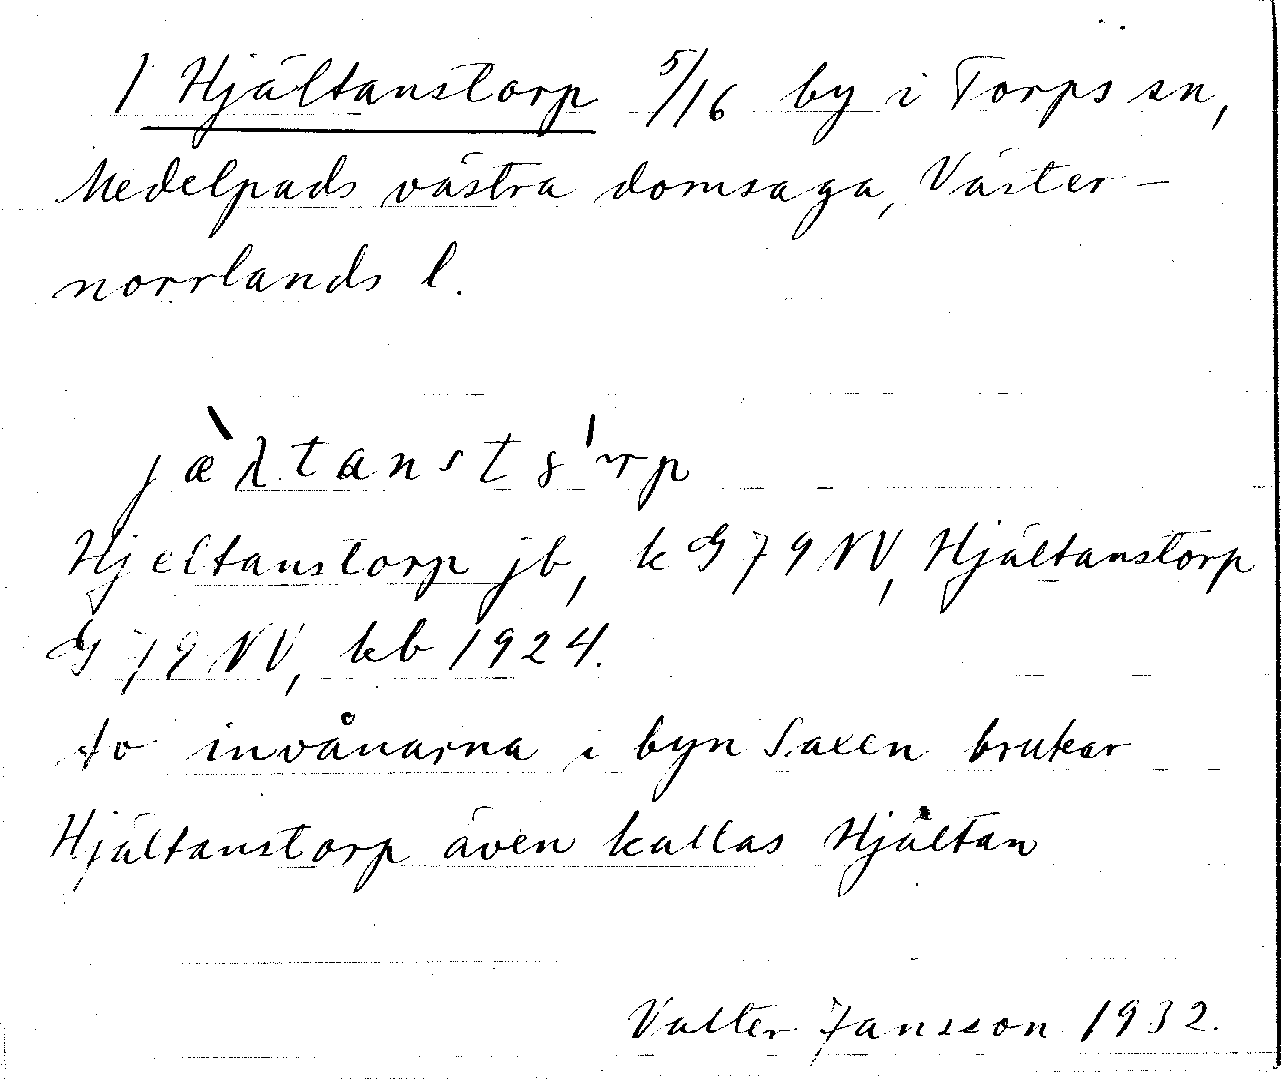 1 Hjältanstorp 5/16 by i Torps sn,
Medelpads västra domsaga, Väster-
norrlands l.
Hjeltanstorp jb, k G 79 NV, Hjältanstorp
G 79 NV, kb 1924.
invånarna i byn Saxen brukar
Hjältanstorp även kallas Hjältan
Valter Jansson 1932.